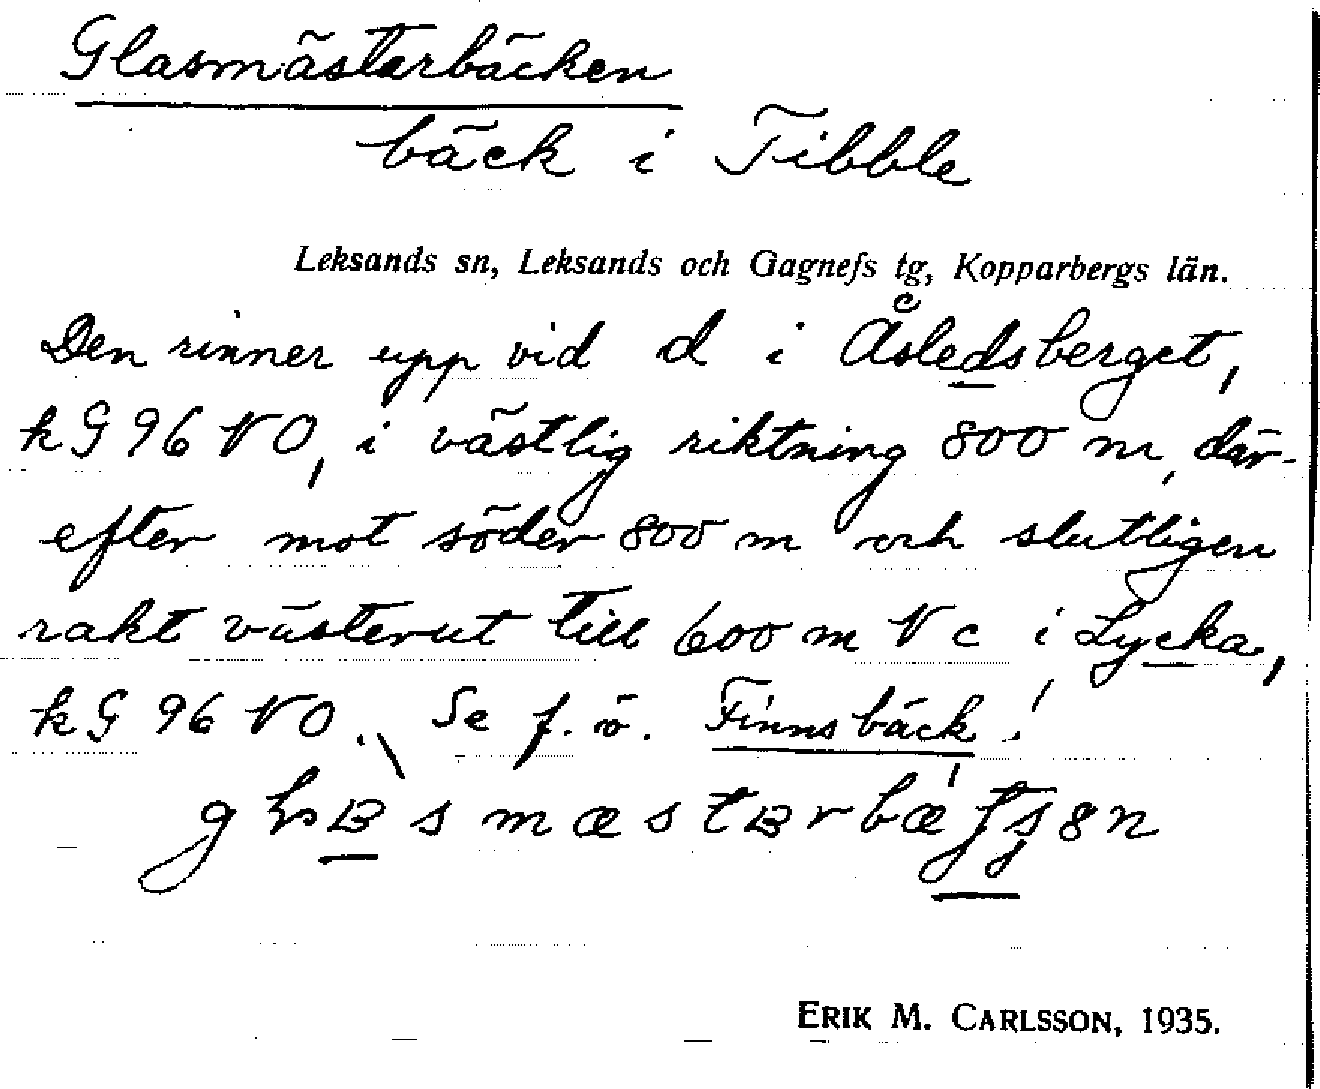 Glasmästarbäcken
bäck i Tibble
Leksands sn, Leksands och Gagnefs tg, Kopparbergs län.
Den rinner upp vid d i Åsledsberget,
kG 96 NO, i västlig riktning 800 m, där-
efter mot söder 800 m och slutligen
rakt västerut till 600 m N c i Lycka,
kG 96 NO. Se f. ö. Finnsbäck!
ERIK M. CARLSSON, 1935.